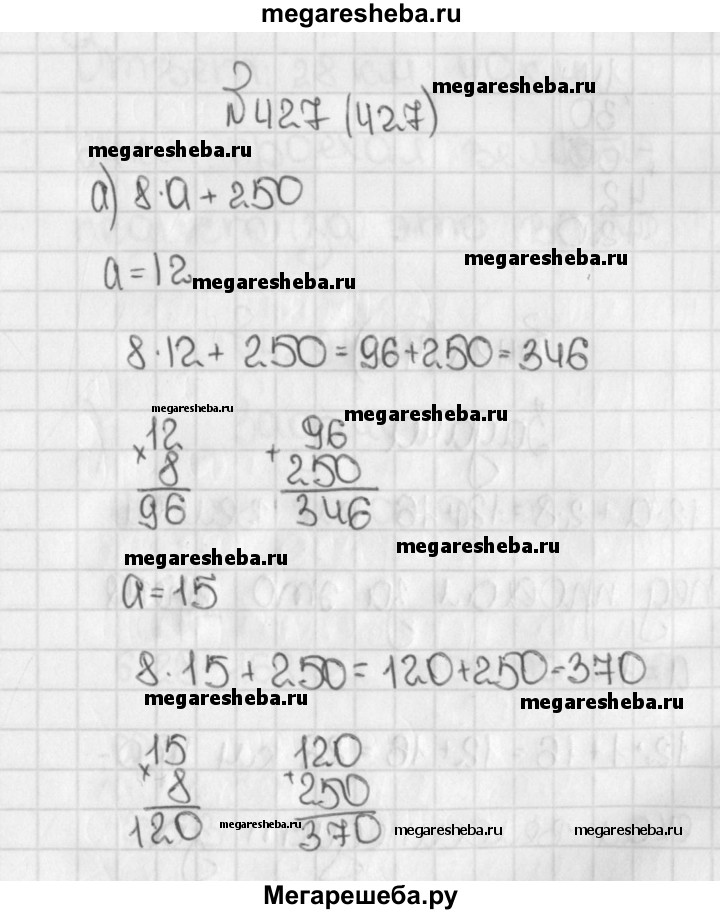 megaresheba.ru
№ 427 (427)
megaresheba.ru
megaresheba.ru
а) 8·а + 250
megaresheba.ru
а = 12
megaresheba.ru
8·12 + 250 = 96 + 250 = 346
megaresheba.ru
megaresheba.ru
12 96
× 8 + 250
96 346
megaresheba.ru
megaresheba.ru
а = 15
8·15 + 250 = 120 + 250 = 370
megaresheba.ru
megaresheba.ru
15 120
× 8 + 250
120 370
megaresheba.ru
megaresheba.ru
megaresheba.ru
Мегарешеба.ру